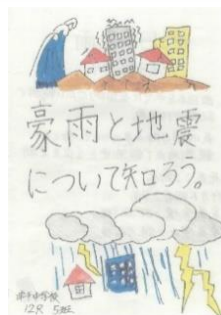 豪雨と地震
について知ろう。
12R 5班